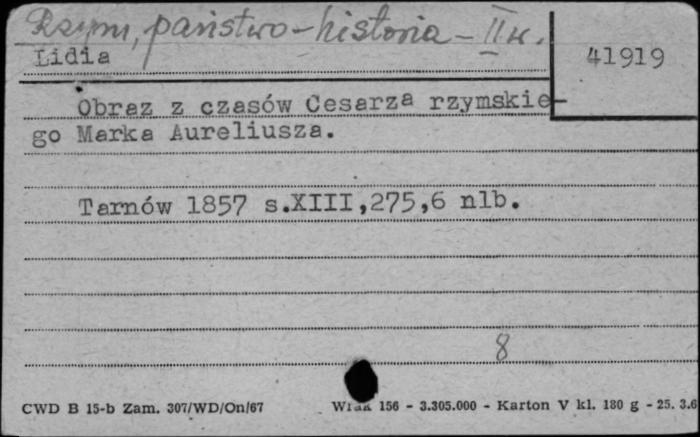 Rzym, państwo - historia - II w.
Lidia
41919
Obraz z czasów Cesarza rzymskie-
go Marka Aureliusza.
Tarnów 1857 s.XIII,275,6 nlb.
8
CWD B 15-b Zam. 307/WD/On/67
156 - 3.305.000 - Karton V kl. 180 g - 25. 3.6